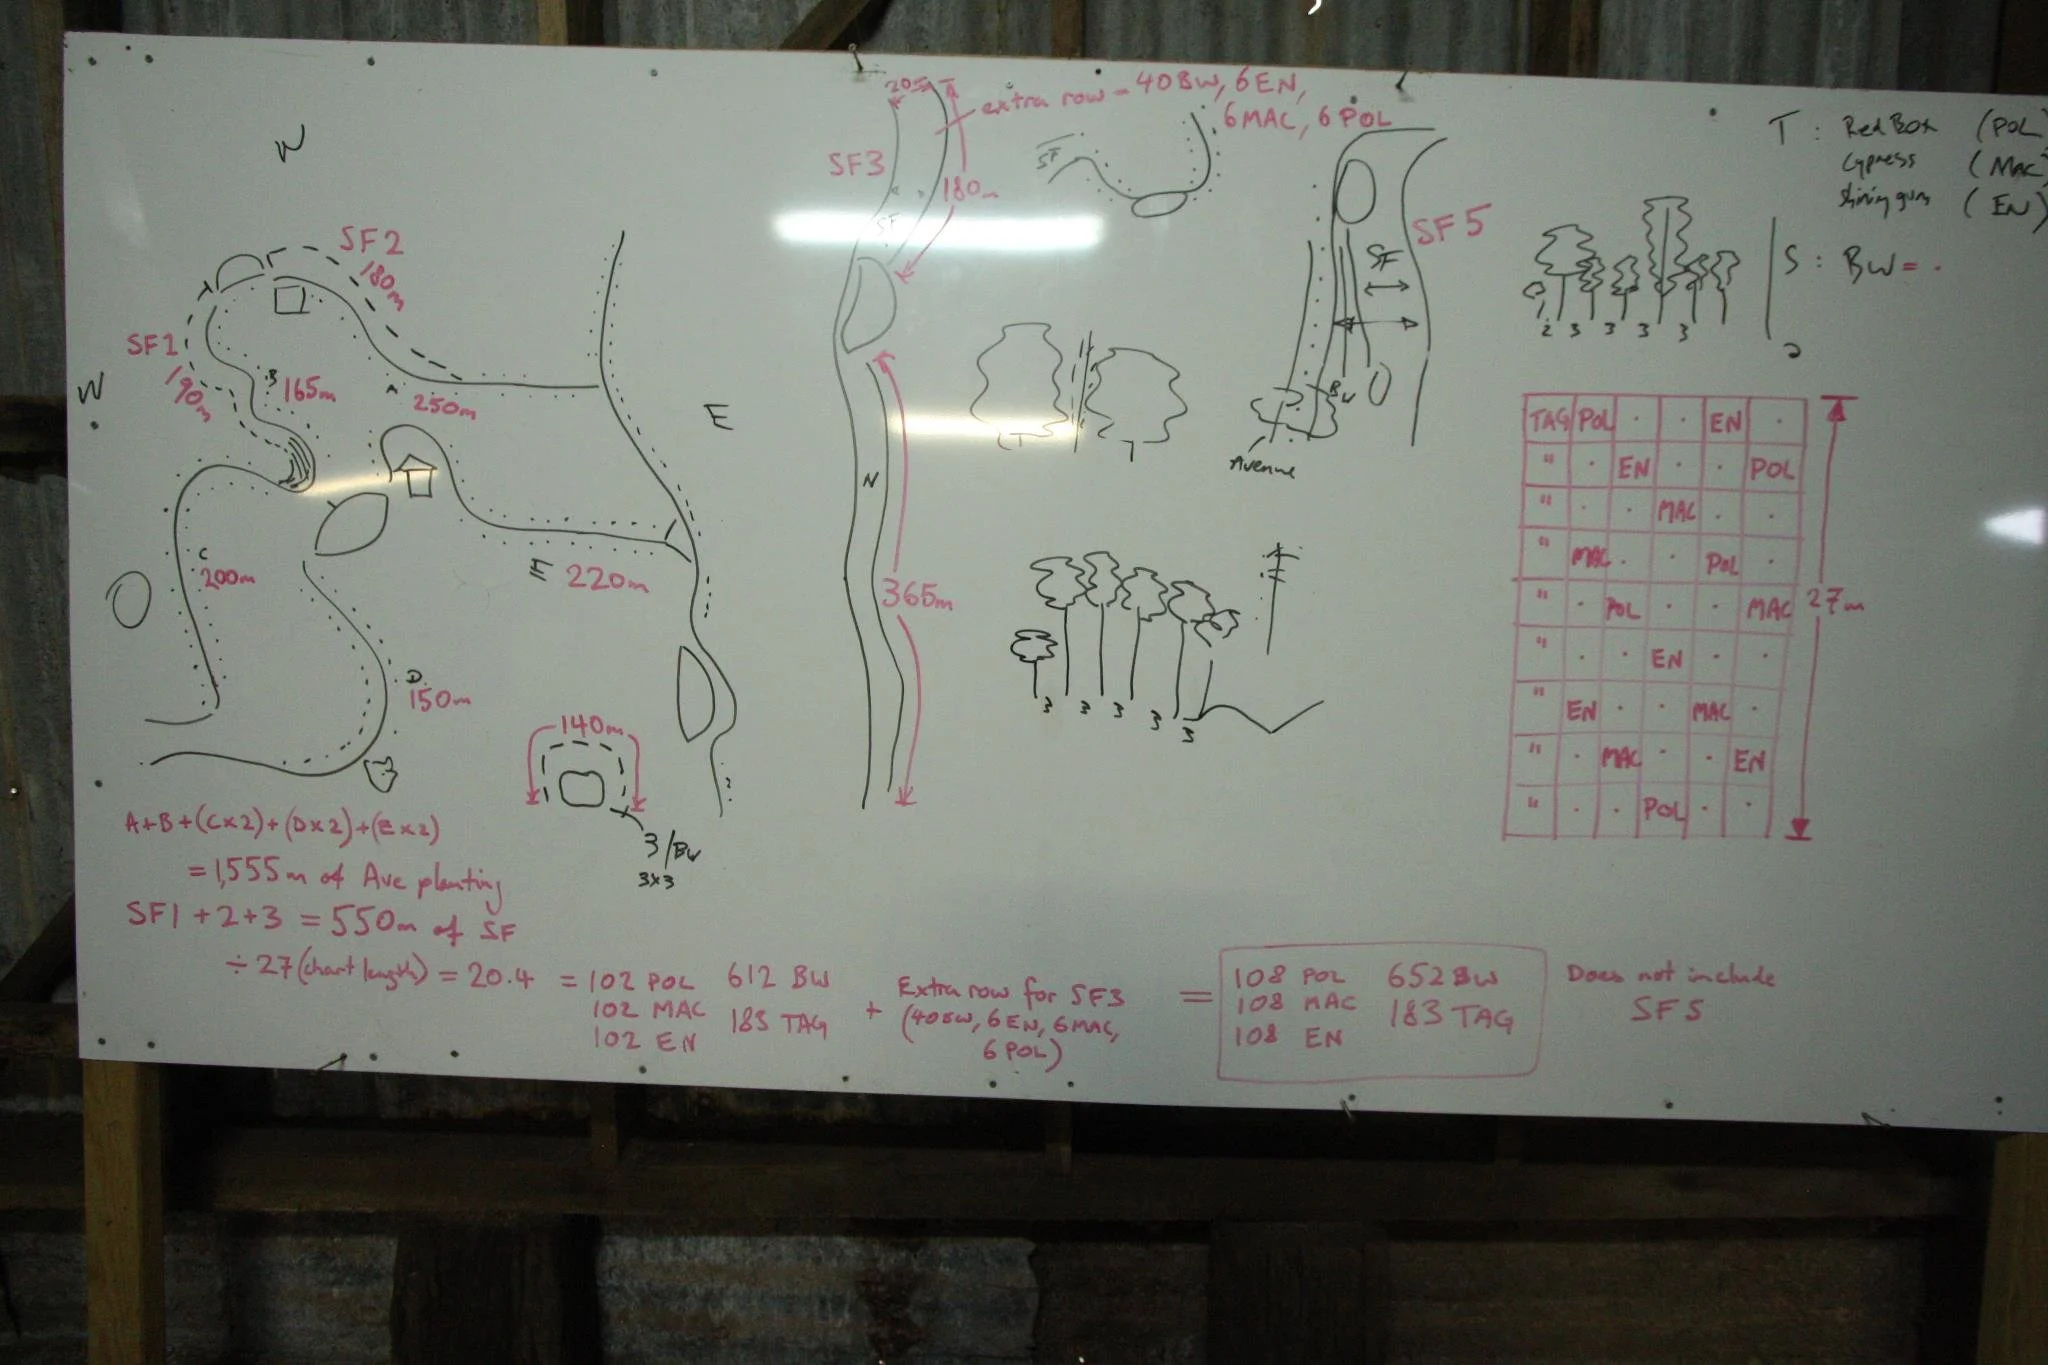 N
W
E
SF2
180m
SF1
190m
B 165m
A 250m
C
200m
E 220m
D
150m
140m
3/BW
3x3
A+B+(Cx2)+(Dx2)+(Ex2)
= 1,555m of Ave planting
SF1 + 2 + 3 = 550m of SF
÷ 27 (chart length) = 20.4 = 102 POL 612 BW
102 MAC 183 TAG
102 EN
+ Extra row for SF3
(40BW, 6EN, 6MAC,
6 POL)
= 108 POL 652 BW
108 MAC 183 TAG
108 EN
Does not include
SF5
20m
extra row = 40BW, 6EN,
6MAC, 6 POL
SF3
180m
SF
N
365m
SF
T
T
SF5
SF
BW
Avenue
3 3 3 3 3
T : Red Box (POL)
Cypress (MAC)
Shining gum (EN)
S : BW = .
2 3 3 3 3
TAG POL . . EN .
" . EN . . POL
" . . MAC . .
" MAC . . POL .
" . POL . . MAC
" . . EN . .
" EN . . MAC .
" . MAC . . EN
" . . POL . .
27m